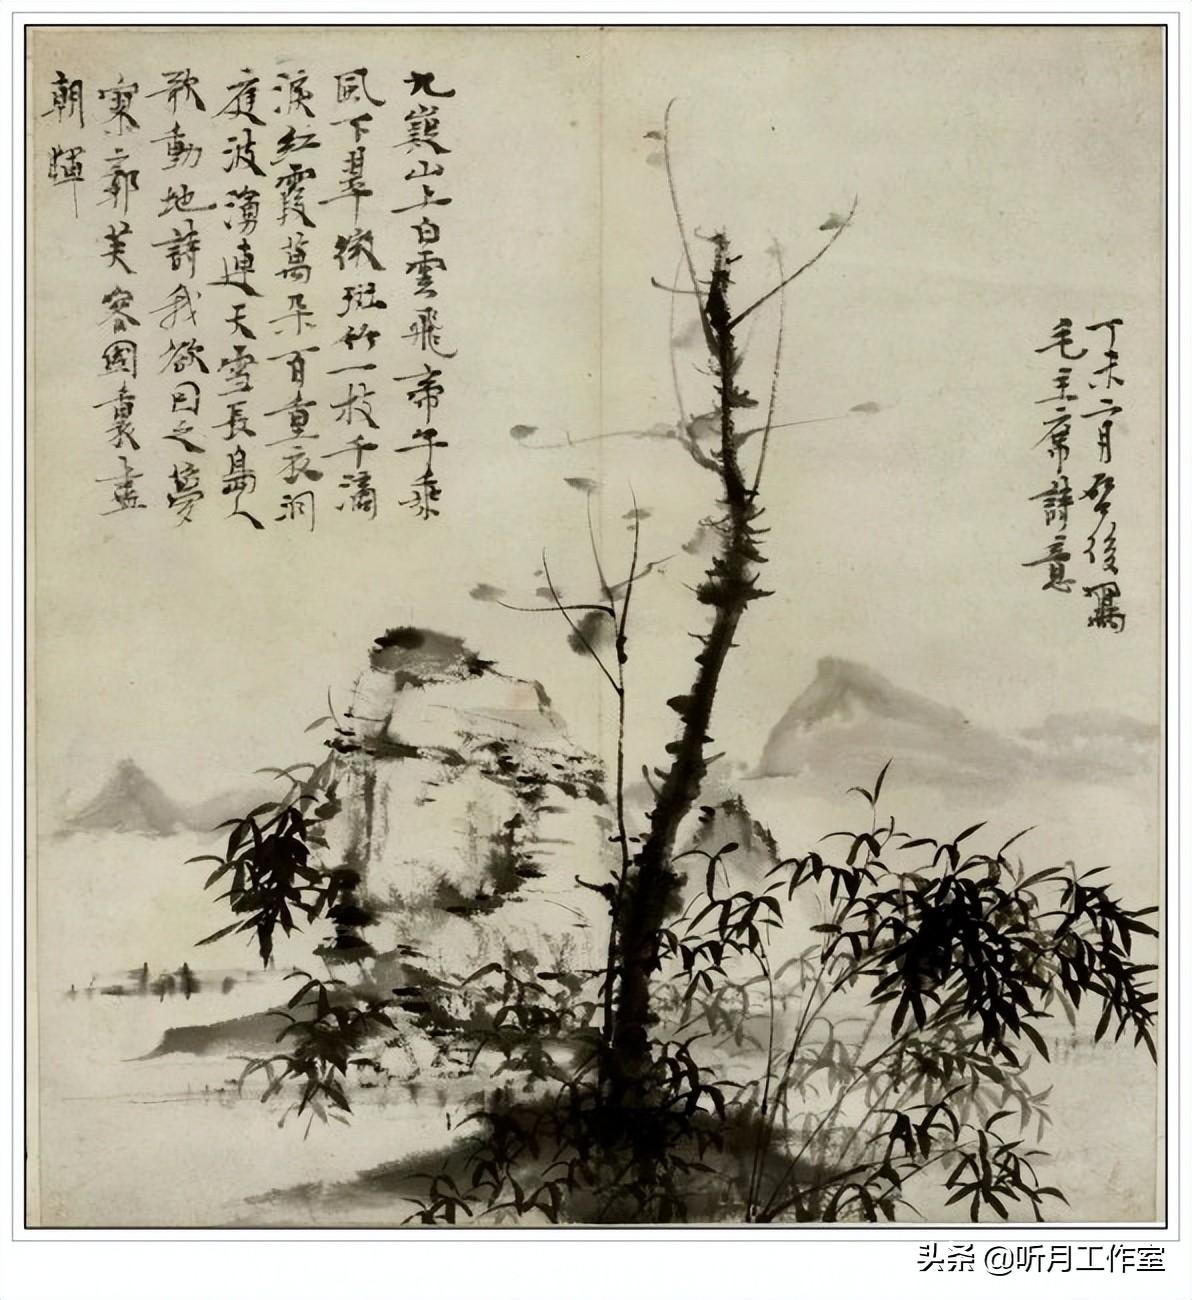 丁未六月後寫
毛主席詩意
九嶷山上白雲飛帝子乘
風下翠微斑竹一枝千滴
淚紅霞萬朵百重衣洞
庭波湧連天雪長島人
歌動地詩我欲因之夢
寥廓芙蓉國裏盡
朝暉
头条 @听月工作室